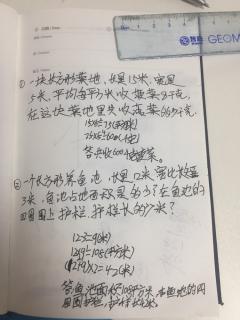 GEOM
①一块长方形菜地,长是15米,宽是
5米,平均每平方米收蔬菜8千克,
在这块菜地里共收蔬菜多少千克?
15×5=75(平方米)
75×8=600(千克)
答:共收600千克蔬菜。
②一个长方形养鱼池,长是12米,宽比长短
3米,鱼池占地面积是多少?在鱼池的
四周围上护栏,护栏长多少米?
12-3=9(米)
12×9=108(平方米)
(12+9)×2=42(米)
答:鱼池面积108平方米,在鱼池的四
周围护栏,护栏长42米。